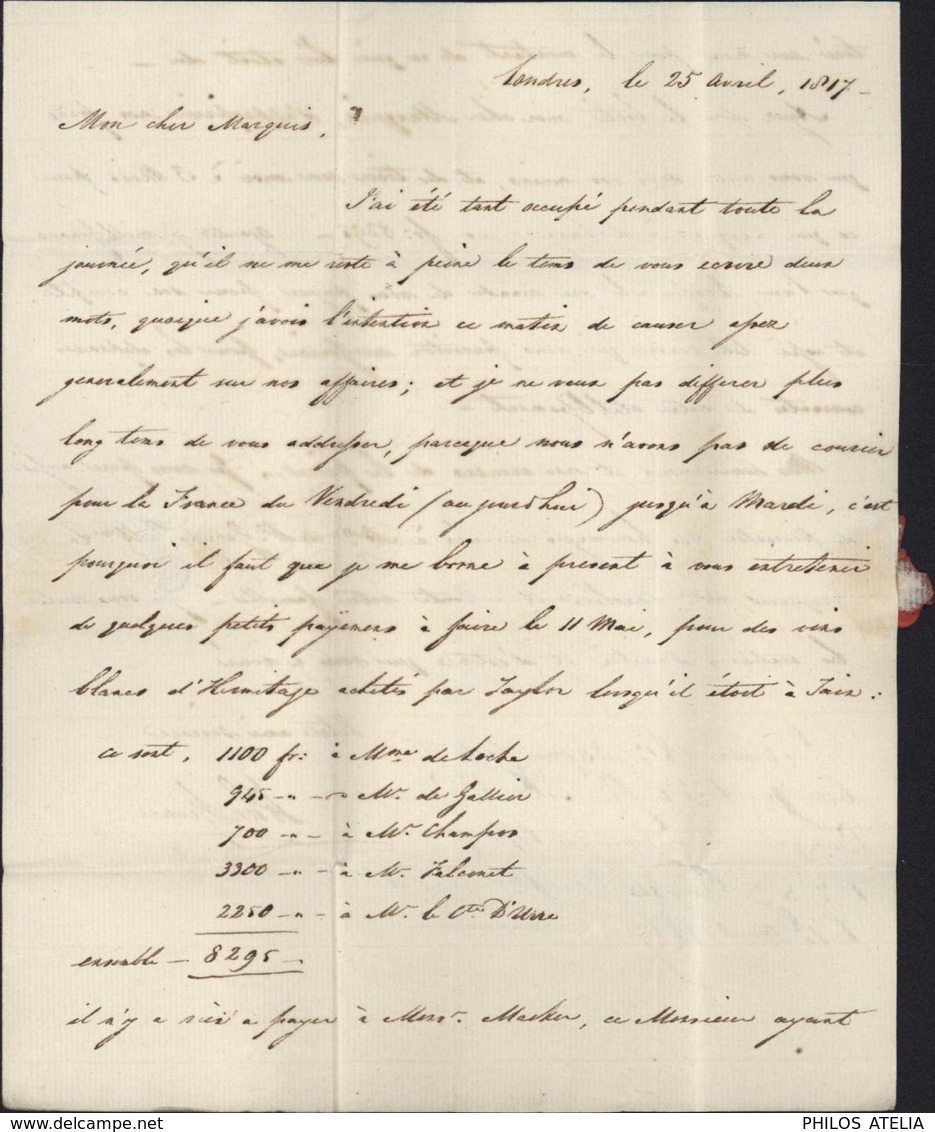 Londres, le 25 Avril, 1817 -
Mon cher Marquis,
J'ai été tant occupé pendant toute la
journée, qu'il ne me reste à peine le tems de vous ecrire deux
mots, quoique j'avois l'intention ce matin de causer assez
generalement sur nos affaires; et je ne veux pas differer plus
long tems de vous addresser, parceque nous n'avons pas de courier
pour la France du Vendredi (aujourd'hui) jusqu'à Mardi, c'est
pourquoi il faut que je me borne à present à vous entretenir
de quelques petits payemens à faire le 11 Mai, pour des vins
blancs d'Hermitage achetés par Taylor lorsqu'il étoit à Tain:
ce sont, 1100 fr: à Mme de Loche
945 -"- - à Mr. de Gallier
700 -"- - à Mr. Champos
3300 -"- - à M. Falconet
2250 -"- - à Mr. le Cte D'Urre
ensemble - 8295 -
il n'y a rien a payer à Monsr. Macker, ce Monsieur ayant
PHILOS ATELIA